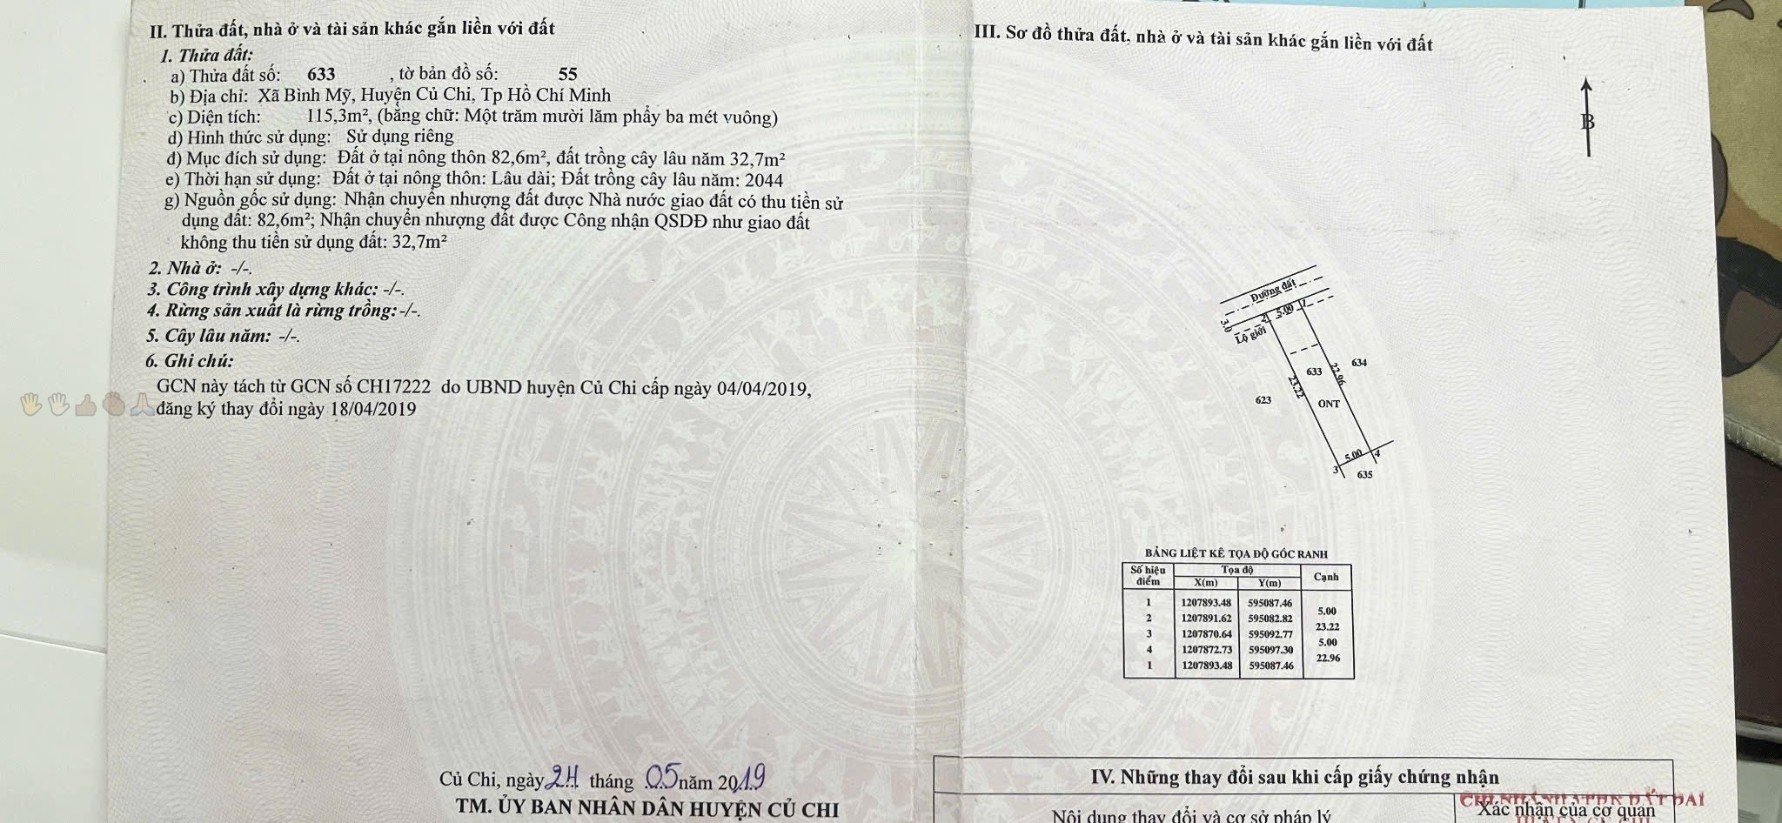 II. Thửa đất, nhà ở và tài sản khác gắn liền với đất
1. Thửa đất:
a) Thửa đất số: 633 , tờ bản đồ số: 55
b) Địa chỉ: Xã Bình Mỹ, Huyện Củ Chi, Tp Hồ Chí Minh
c) Diện tích: 115,3m², (bằng chữ: Một trăm mười lăm phẩy ba mét vuông)
d) Hình thức sử dụng: Sử dụng riêng
đ) Mục đích sử dụng: Đất ở tại nông thôn 82,6m², đất trồng cây lâu năm 32,7m²
e) Thời hạn sử dụng: Đất ở tại nông thôn: Lâu dài; Đất trồng cây lâu năm: 2044
g) Nguồn gốc sử dụng: Nhận chuyển nhượng đất được Nhà nước giao đất có thu tiền sử
dụng đất: 82,6m²; Nhận chuyển nhượng đất được Công nhận QSDĐ như giao đất
không thu tiền sử dụng đất: 32,7m²
2. Nhà ở: -/-.
3. Công trình xây dựng khác: -/-.
4. Rừng sản xuất là rừng trồng: -/-.
5. Cây lâu năm: -/-.
6. Ghi chú:
GCN này tách từ GCN số CH17222 do UBND huyện Củ Chi cấp ngày 04/04/2019,
đăng ký thay đổi ngày 18/04/2019
Củ Chi, ngày 24 tháng 05 năm 2019
TM. ỦY BAN NHÂN DÂN HUYỆN CỦ CHI
III. Sơ đồ thửa đất, nhà ở và tài sản khác gắn liền với đất
B
Đường đất
3.0
Lộ giới
2
5.00
1
634
633
22.96
23.22
623
ONT
5.00
4
3
635
BẢNG LIỆT KÊ TỌA ĐỘ GÓC RANH
Số hiệu điểm Tọa độ Cạnh
X(m) Y(m)
1 1207893.48 595087.46
5.00
2 1207891.62 595082.82
23.22
3 1207870.64 595092.77
5.00
4 1207872.73 595097.30
22.96
1 1207893.48 595087.46
IV. Những thay đổi sau khi cấp giấy chứng nhận
Nội dung thay đổi và cơ sở pháp lý
CHI NHÁNH VPĐK ĐẤT ĐAI
Xác nhận của cơ quan